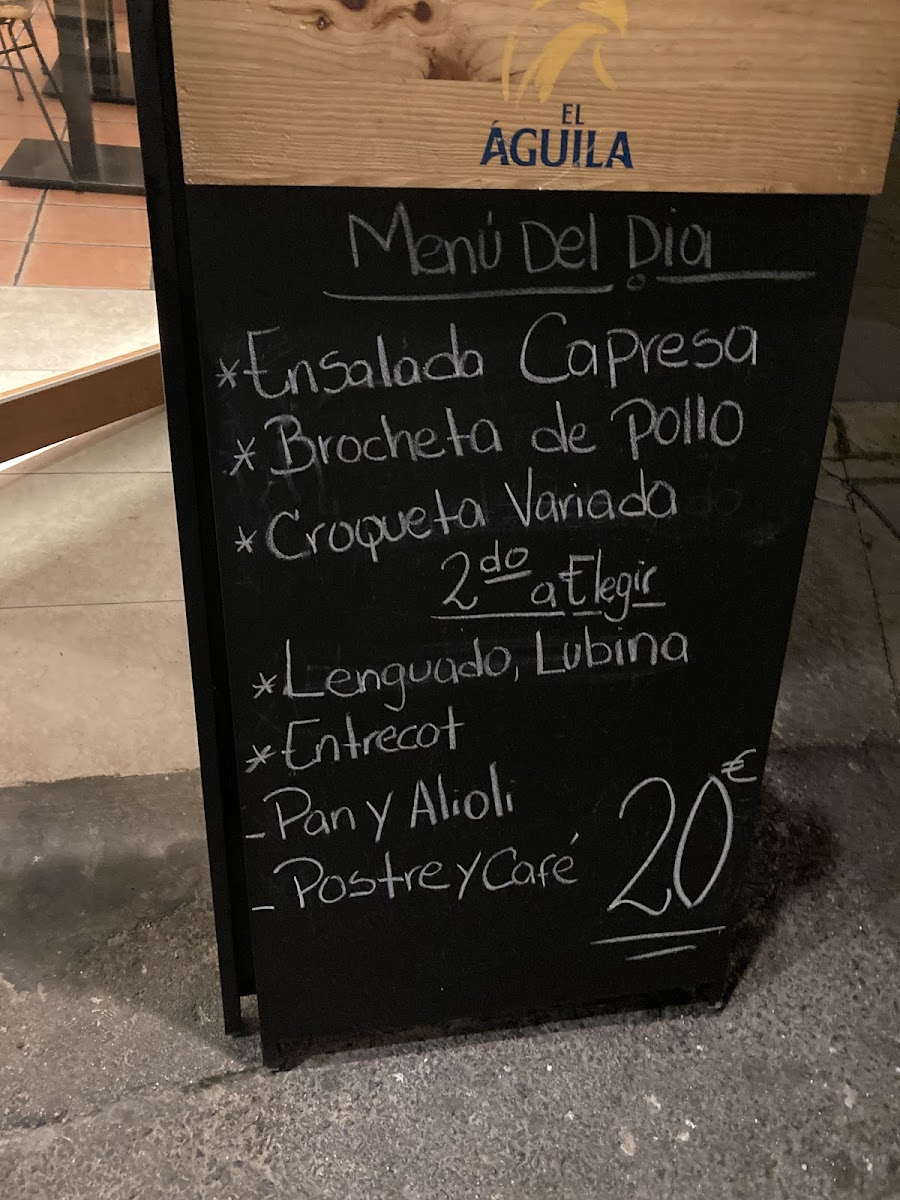 EL
ÁGUILA
Menú Del Dia
*Ensalada Capresa
*Brocheta de Pollo
*Croqueta Variada
2do a Elegir
*Lenguado, Lubina
*Entrecot
-Pan y Alioli
-Postre y Café
20€